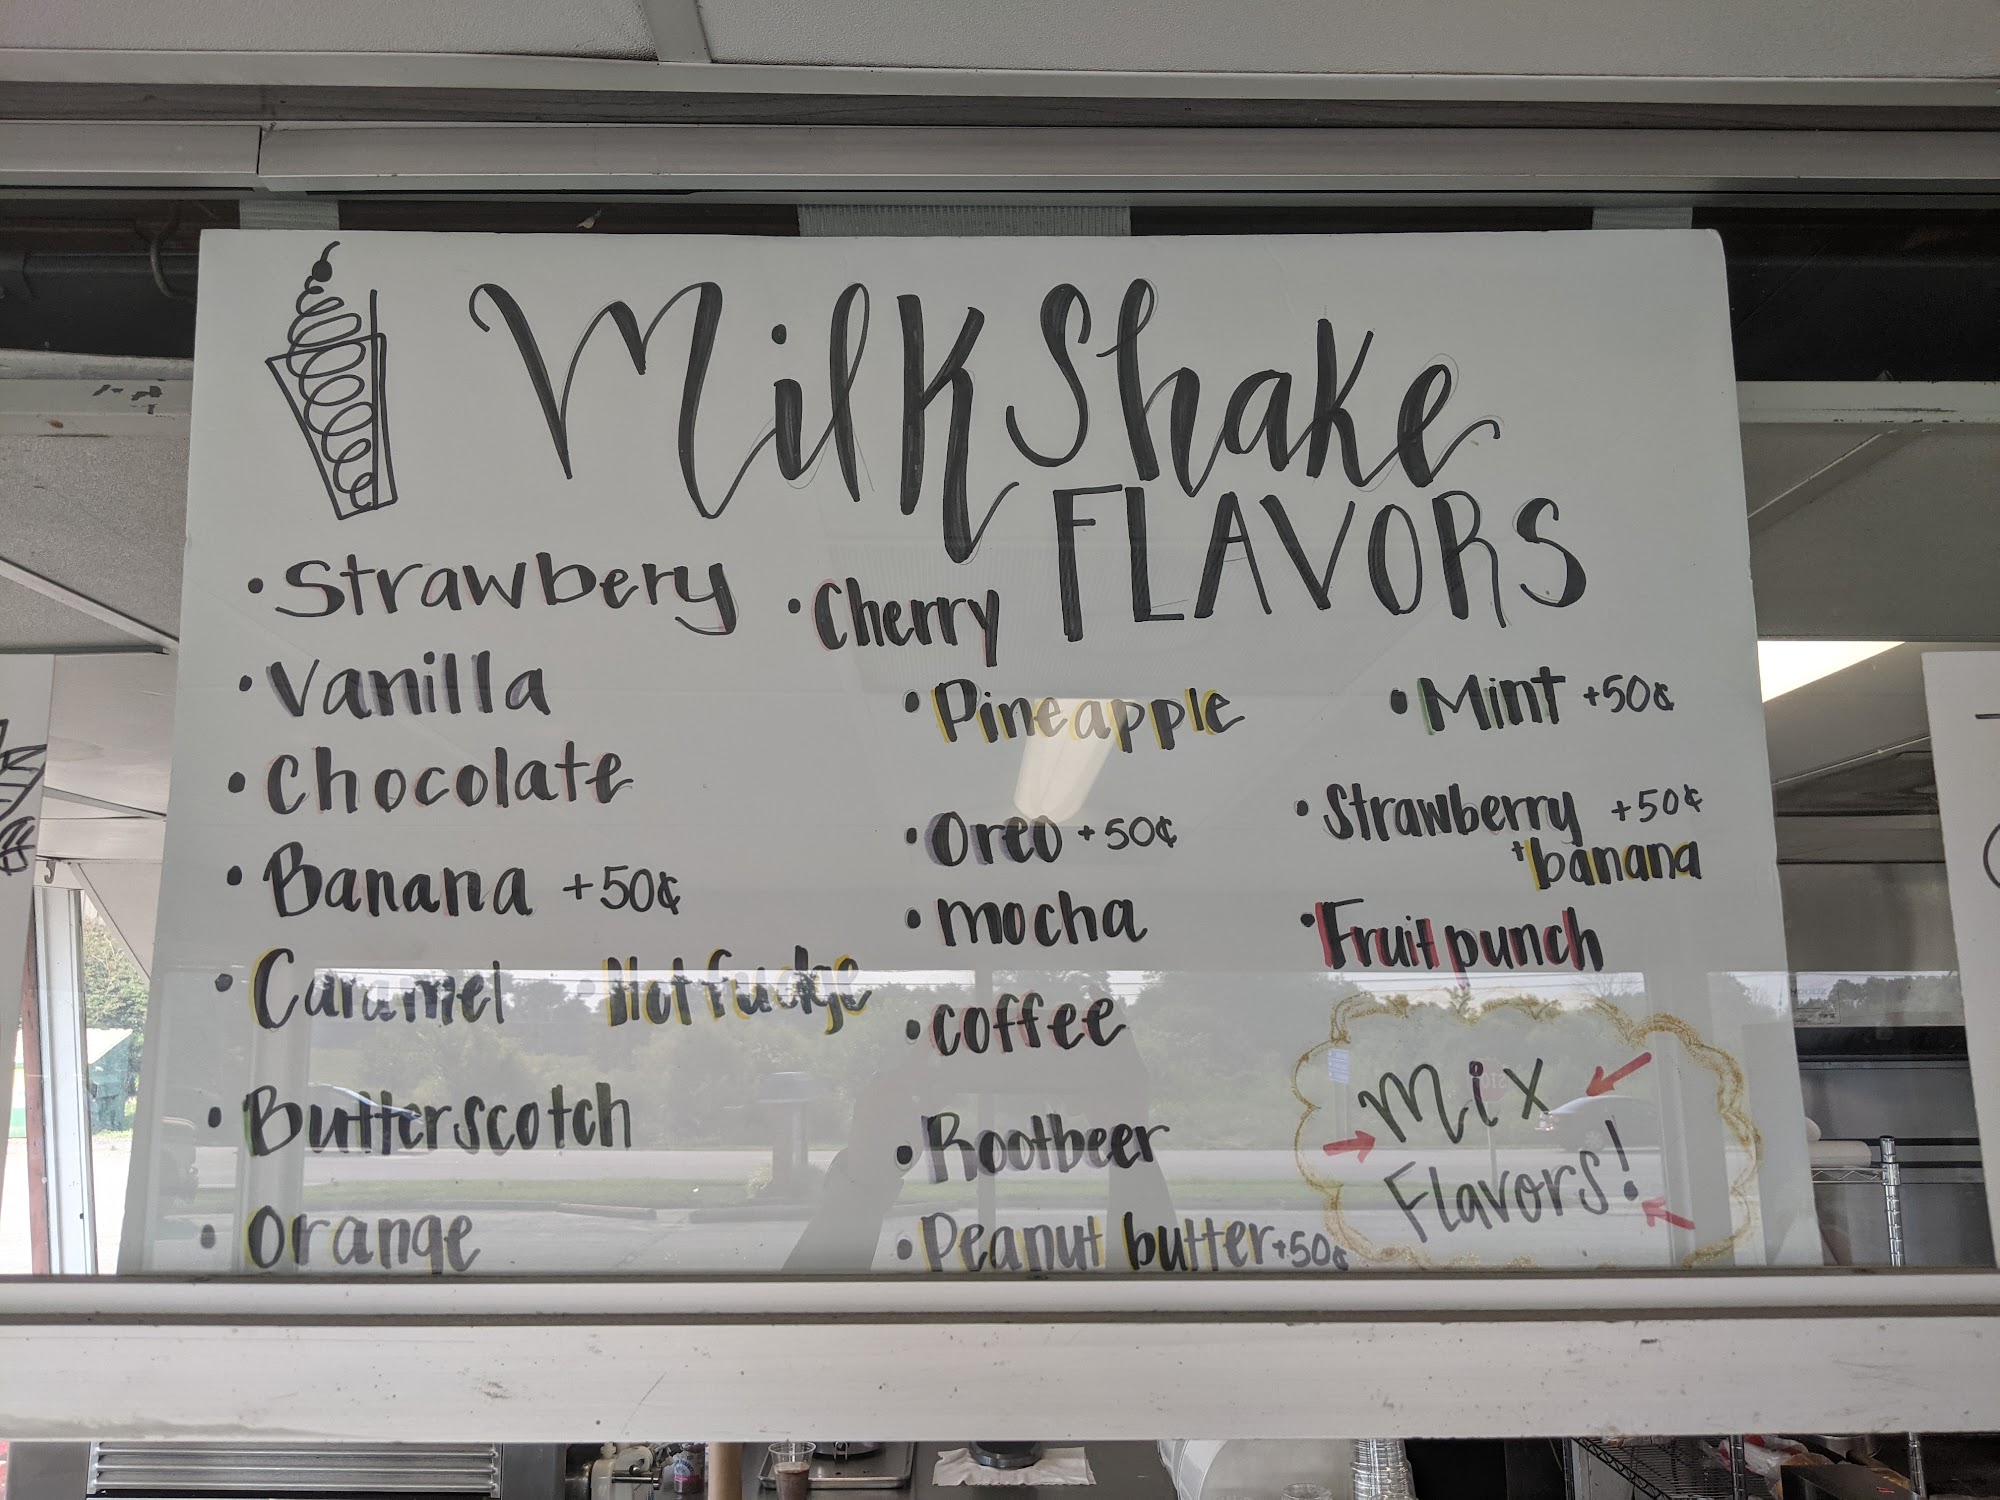 MilkShake
FLAVORS
• Strawbery
• Vanilla
• Chocolate
• Banana +50¢
• Caramel
• Hot fudge
• Butterscotch
• Orange
• Cherry
• Pineapple
• Oreo +50¢
• mocha
• coffee
• Rootbeer
• Peanut butter +50¢
• Mint +50¢
• Strawberry +50¢
+banana
• Fruit punch
Mix
Flavors!